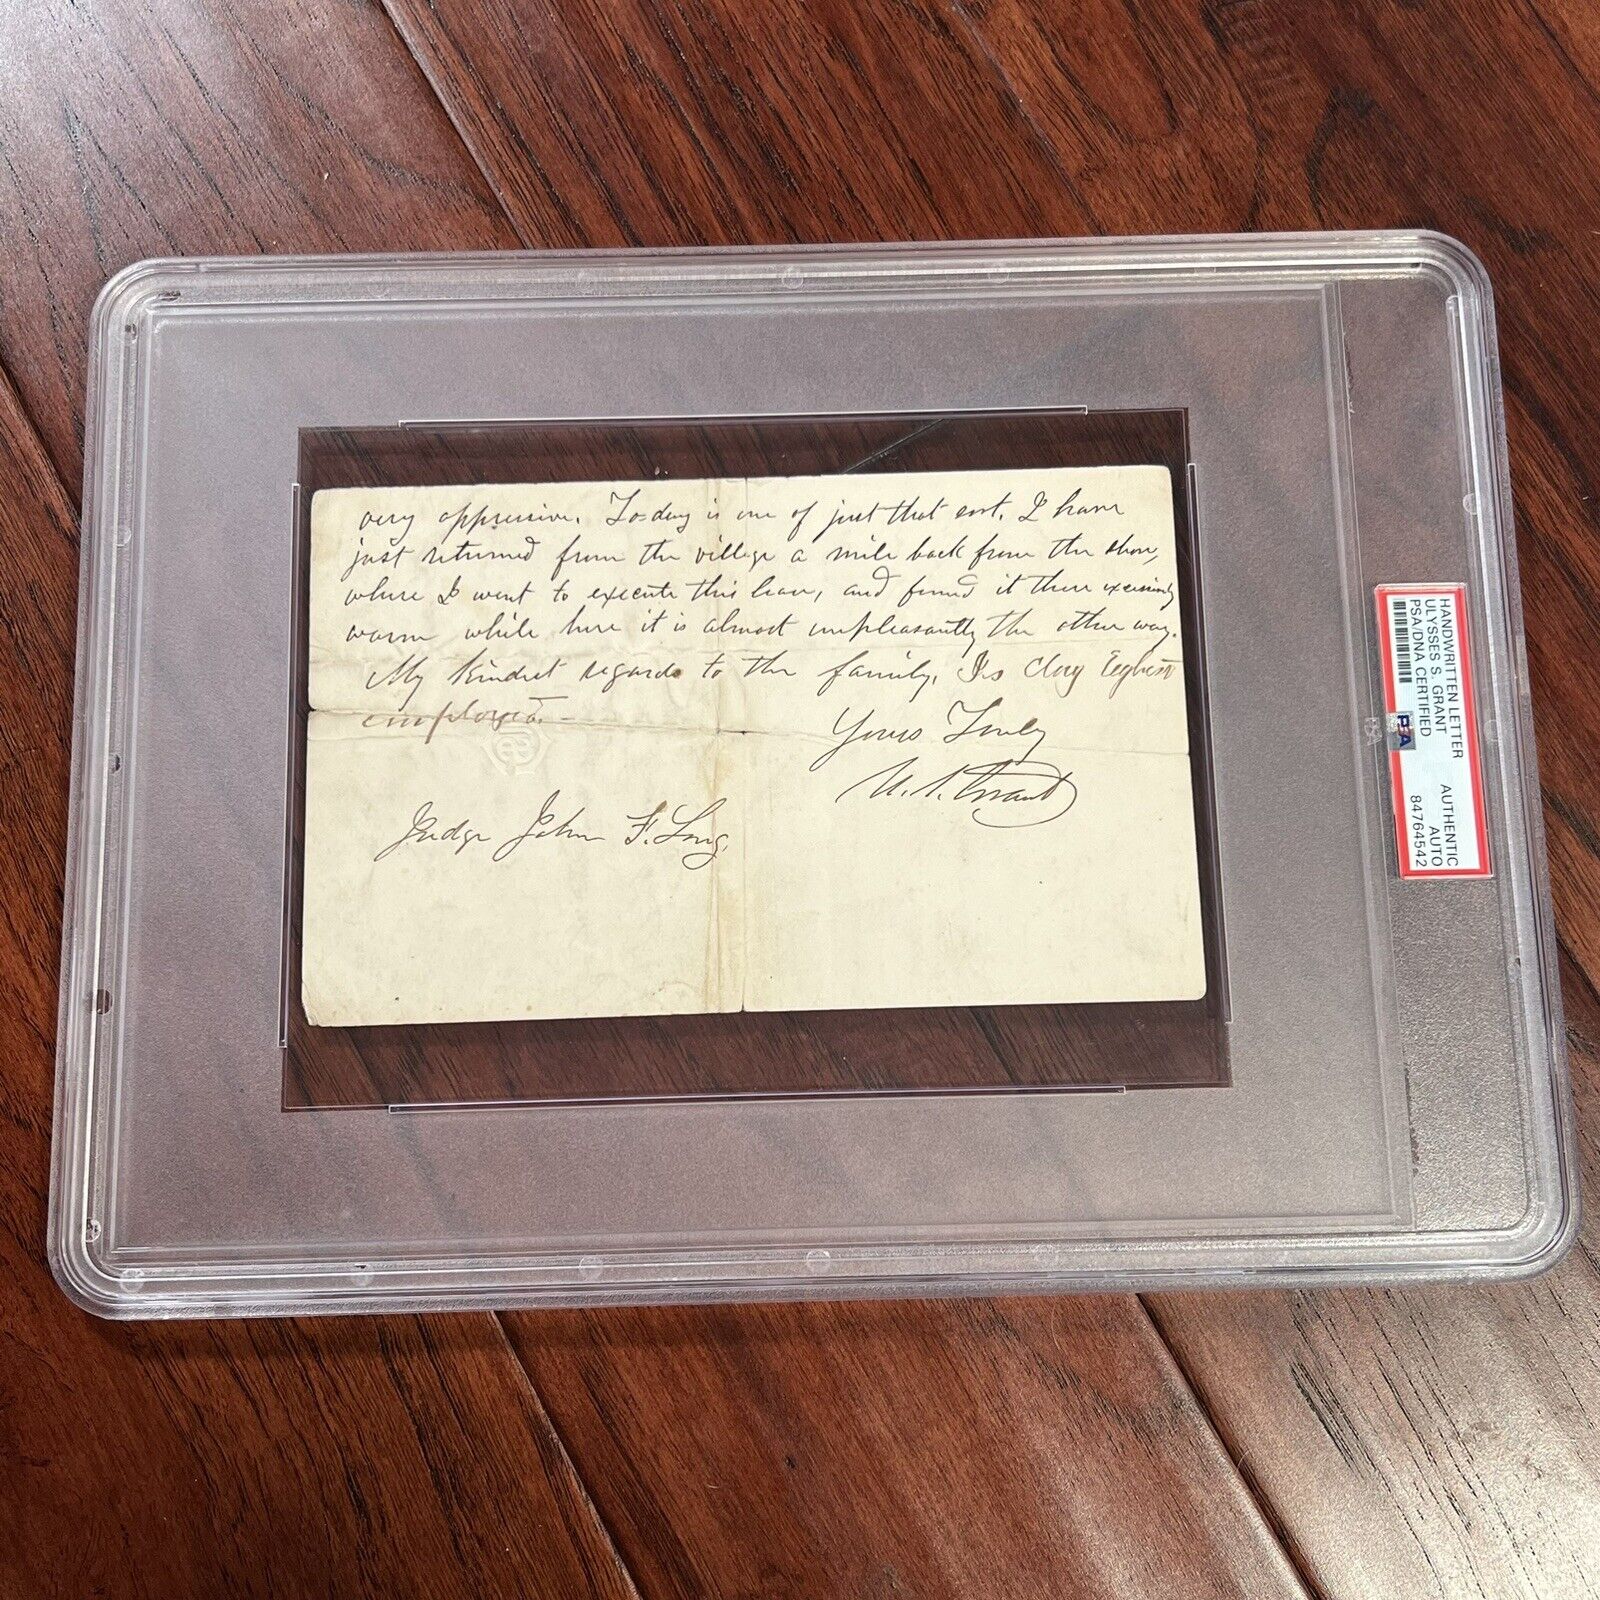 very oppressive. To-day is one of just that sort. I have
just returned from the village a mile back from the shore,
where I went to execute this leave, and found it there excessively
warm while here it is almost unpleasantly the other way.
My kindest regards to the family. Is Clay
employed.
Yours Truly
U. S. Grant
Judge John F. Long.
HANDWRITTEN LETTER
ULYSSES S. GRANT
PSA/DNA CERTIFIED
PSA
AUTHENTIC
AUTO
84764542